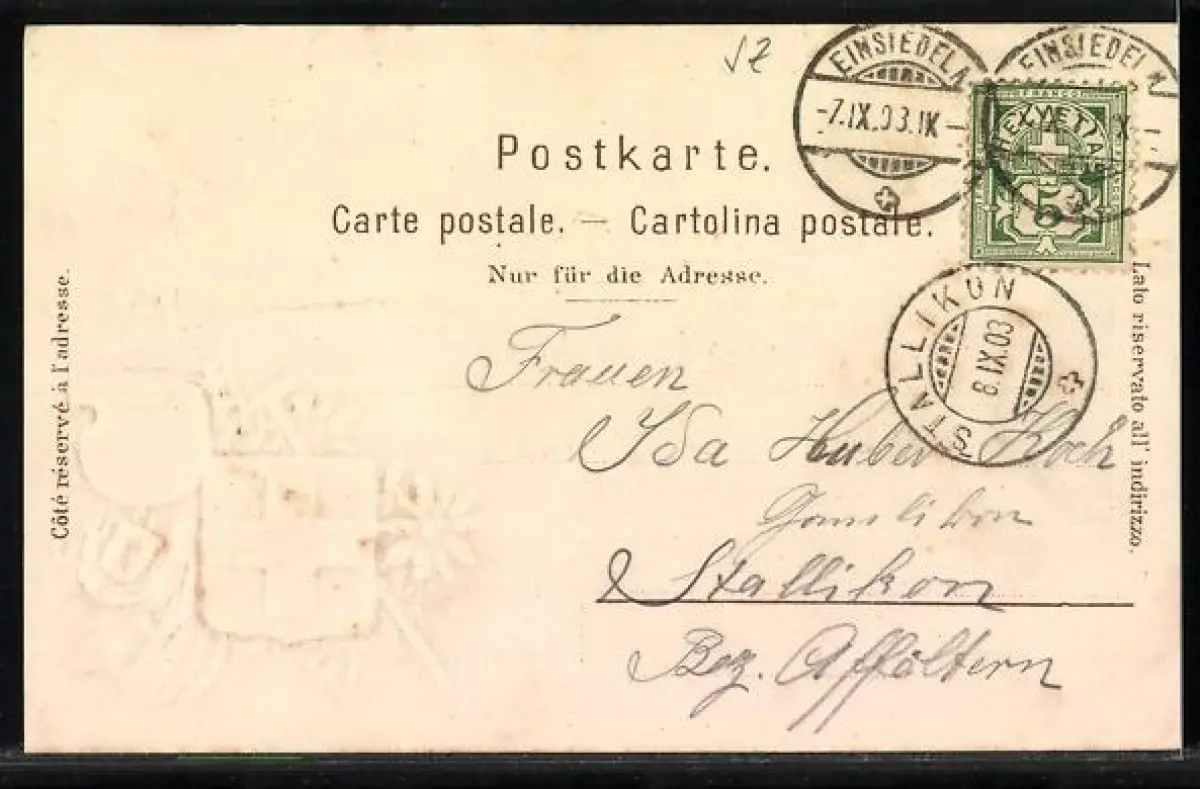 SZ
EINSIEDELN
-7.IX.03.IX-
EINSIEDELN
FRANCO
HELVETIA
5
Postkarte.
Carte postale. — Cartolina postale.
Nur für die Adresse.
Côté réservé à l'adresse.
Lato riservato all' indirizzo.
STALLIKON
8.IX.03
Frauen
Ida Huber Hoch
Gamlikon
Stallikon
Bez. Affoltern